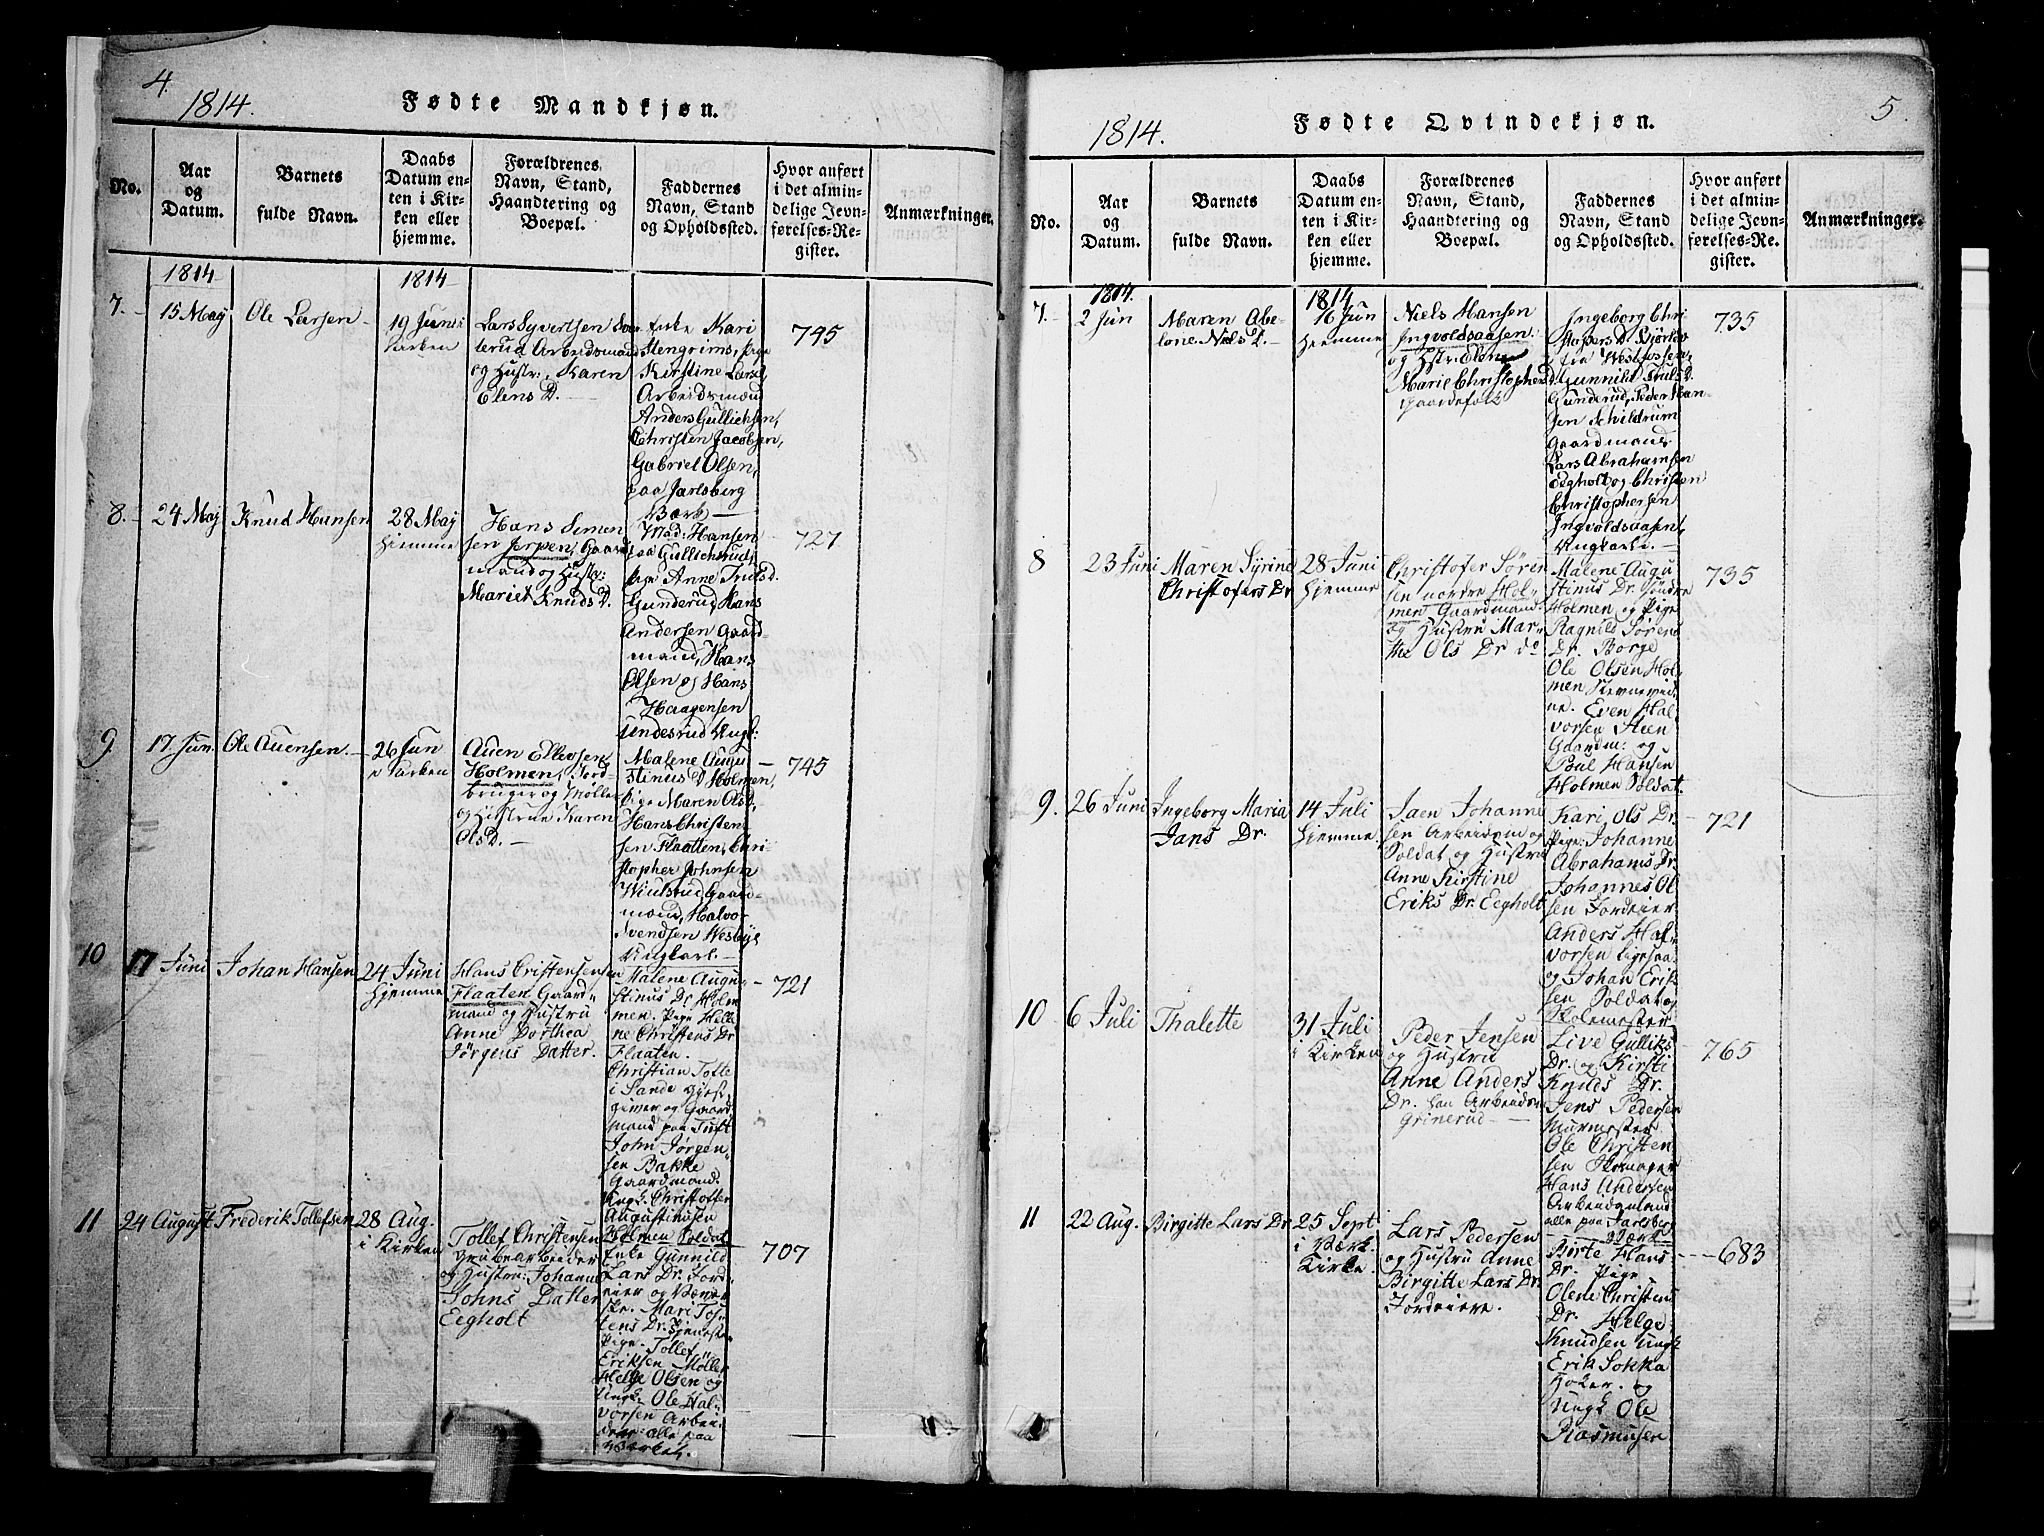 4.
1814.
Fødte Mandkjøn.
No.
Aar
og
Datum.
Barnets
fulde Navn.
Daabs
Datum en-
ten i Kir-
ken eller
hjemme.
Forældrenes
Navn, Stand,
Haandtering og
Boepæl.
Faddernes
Navn, Stand
og Opholdssted.
Hvor anført
i det almin-
delige Jevn-
førelses-Re-
gister.
Anmærkninger.
1814
1814
7.-
15 May
Ole Larsen
19 Juni
Kirken
Lars Syvertsen
terud Arbeidsmand
og Hustr: Karen
Elens D.
Enke Kari
Stengrims, pige
Kirstine Lars D.
Arbeidsmænd
Anders Gullichsen,
Christen Jacobsen,
Gabriel Olsen,
paa Jarlsberg
Værk
745
8.-
24 May
Knud Hansen
28 May
Hjemme
Hans Simen
sen Jerpen, Gaard
mand og Hustr:
Mariet Knuds D.
Mad: Hansen
paa Gullichsrud,
pige Anne Truls D.
Gunderud, Hans
Andersen Gaard-
mand, Hans
Olsen og Hans
Haagensen
Undesrud Ungk:
727
9
17 Jun.
Ole Auensen.
26 Jun
i Kirken
Auen Ellevsen
Holmen, Jord-
bruger og Mølle
og Hustrue Karen
Ols D.
Malene Augu
stinus D Holmen,
Pige Maren Ols D,
Hans Christen
sen Flaatten, Chri-
stopher Johnsen
Wiulsrud, Gaard-
mænd, Halvo-
Svendsen Wesbye
Ungkarl.
745
10
17 Juni
Johan Hansen
24 Juni
Hjemme
Hans Cristensen
Flaaten Gaard"
mand og Hustru
Anne Dorthea
Jörgens Datter.
Malene Augu-
stinus Dr. Holm
men. Pige Helle
ne Christens Dr
Flaaten.
Christian Tofte
i Sande gjest
giver og Gaard
mand paa Tuft
John Jørgen-
sen Bakke
Gaardmand.
Ungk. Christoffer
Augustinusen
Holmen Soldat
721
11
24 August
Frederik Tollefsen
28 Aug.
i Kirken
Tollef Christensen
Grubearbeider
og Hustru: Johanne
Johns Datter
Eegholt
Enke Gunnild
Lars Dr. Jord
eier og Værk
Mari Tos
tens Dr. tjeneste
Pige. Tollef
Eriksen Møller
Helge Olsen og
Ungk. Ole Hal-
vorsen Arbei
dere alle paa
Værket.
707
1814.
Fødte Qvindekjøn.
5.
No.
Aar
og
Datum.
Barnets
fulde Navn.
Daabs
Datum en-
ten i Kir-
ken eller
hjemme.
Forældrenes
Navn, Stand,
Haandtering og
Boepæl.
Faddernes
Navn, Stand
og Opholdssted.
Hvor anført
i det almin-
delige Jevn-
førelses-Re-
gister.
Anmærkninger.
1814.
1814
7.-
2 Jun
Maren Abe-
lone Niels D.
16 Jun
Hjemme
Niels Hansen
Ingvoldsaasen
og Hstr: Elen
Marie Christopher D.
Gaardefolk
Ingeborg Chri
stophers D. Bjørldo
Westfossen,
Gunnild Truls D.
Gunderud, Peder Han-
sen Schildrum
Gaardmand
Lars Abrahamsen
Edgholt og Christen
Christophersen
Ingvoldsaasen,
Ungkarle.
735
8
23 Juni
Maren Syrine
Christofers Dr
28 Juni
Hjemme
Christofer Sören
sen nordre Hol,,
men Gaardmand.
og Hustru Mar-
the Ols Dr do
Malene Augu
stinus Dr. Søndre
Holmen og Pige
Ragnild Sørens
Dr. Borge
Ole Olsen Hol
men
Even Hal
vorsen Steen
Gaardm: og
Poul Hansen
Holmen Soldat.
735
9.
26 Juni
Ingeborg Maria
Jans Dr.
14 Juli
Hjemme
Jaen Johanne
sen Arbeidsm og
Soldat og Hustru
Anne Kirstine
Eriks Dr. Eegholt
Kari Ols Dr.
Pige: Johanne
Abrahams Dr.
Johannes Ol
sen Jordeier
Anders Hal,,
vorsen ligesaa
og Johan Erik
sen Soldat og
Skolemester
721
10
6 Juli
Thalette
31 Juli
i Kirken
Peder Jensen
og Hustru
Anne Anders
Dr. han Arbeidsm
Grinerud
Live Gulliks
Dr. og Kirsti
Knuds Dr.
Jens Pedersen
Murmester
Ole Christen
sen Skomager
Hans Andersen
Arbeidsmand
alle paa Jarlsberg
Værk
765
11
22 Aug.
Birgitte Lars Dr.
25 Sept
i Værk.
Kirke
Lars Pedersen
og Hustru Anne
Birgitte Lars Dr.
Jordeiere.
Birte Hans
Dr. Pige
Olene Christens
Dr. Helge
Knudsen Ungk
Erik Sokka
Høker. og
Ungk Ole
Rasmusen
683